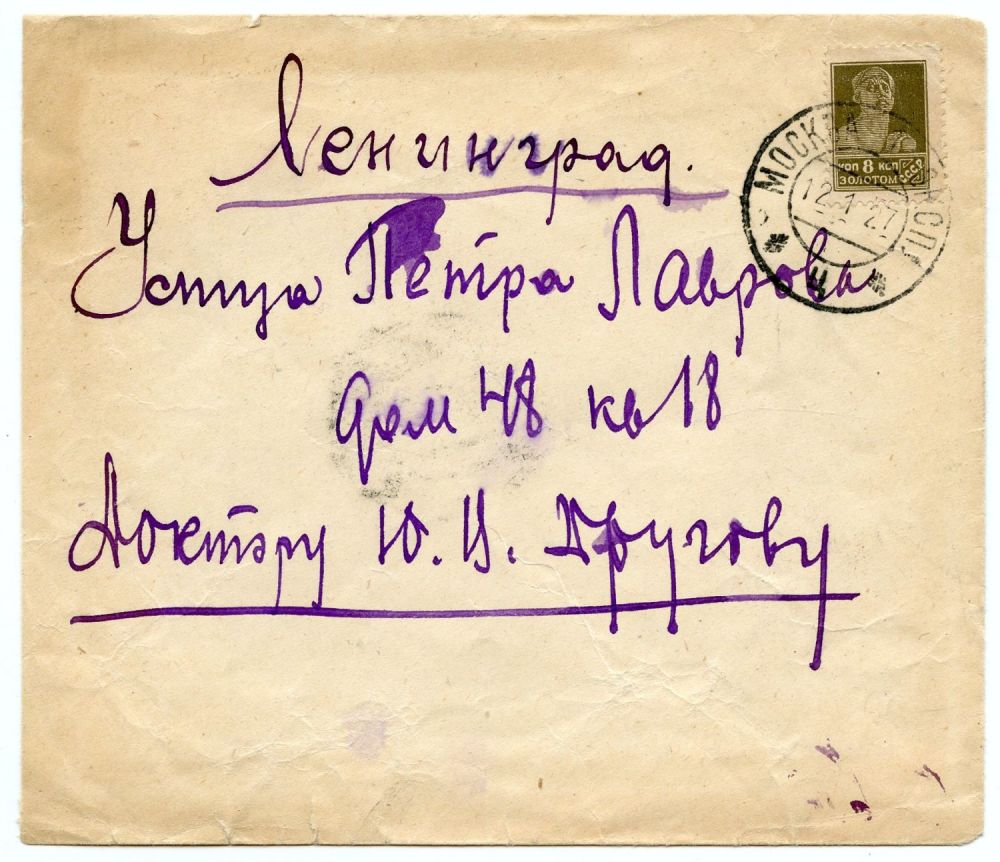 Ленинград.
Улица Петра Лаврова
дом 48 кв 18
Доктору Ю. В. Другову
коп 8 коп
ЗОЛОТОМ СССР
МОСКВА
12 1 27
Ч